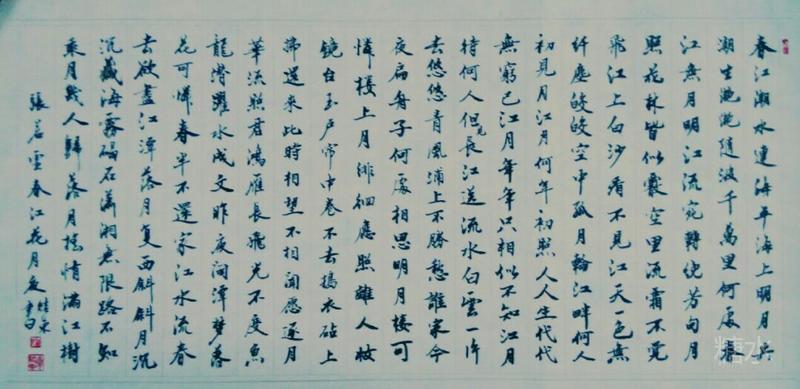 春江潮水連海平海上明月共
潮生滟滟隨波千萬里何處春
江無月明江流宛轉绕芳甸月
照花林皆似霰空里流霜不覺
飛江上白沙看不見江天一色無
纤塵皎皎空中孤月輪江畔何人
初見月江月何年初照人人生代代
無窮已江月年年只相似不知江月
待何人但見長江送流水白雲一片
去悠悠青風浦上不勝愁誰家今
夜扁舟子何處相思明月樓可
憐樓上月徘徊應照離人妝
鏡台玉戶帘中卷不去搗衣砧上
拂還來此時相望不相聞愿逐月
華流照君鴻雁長飛光不度魚
龍潛躍水成文昨夜閑潭夢落
花可憐春半不還家江水流春
去欲盡江潭落月复西斜斜月沉
沉藏海霧碣石瀟湘無限路不知
乘月幾人歸落月搖情滿江樹
張若虛春江花月夜
書
糖水